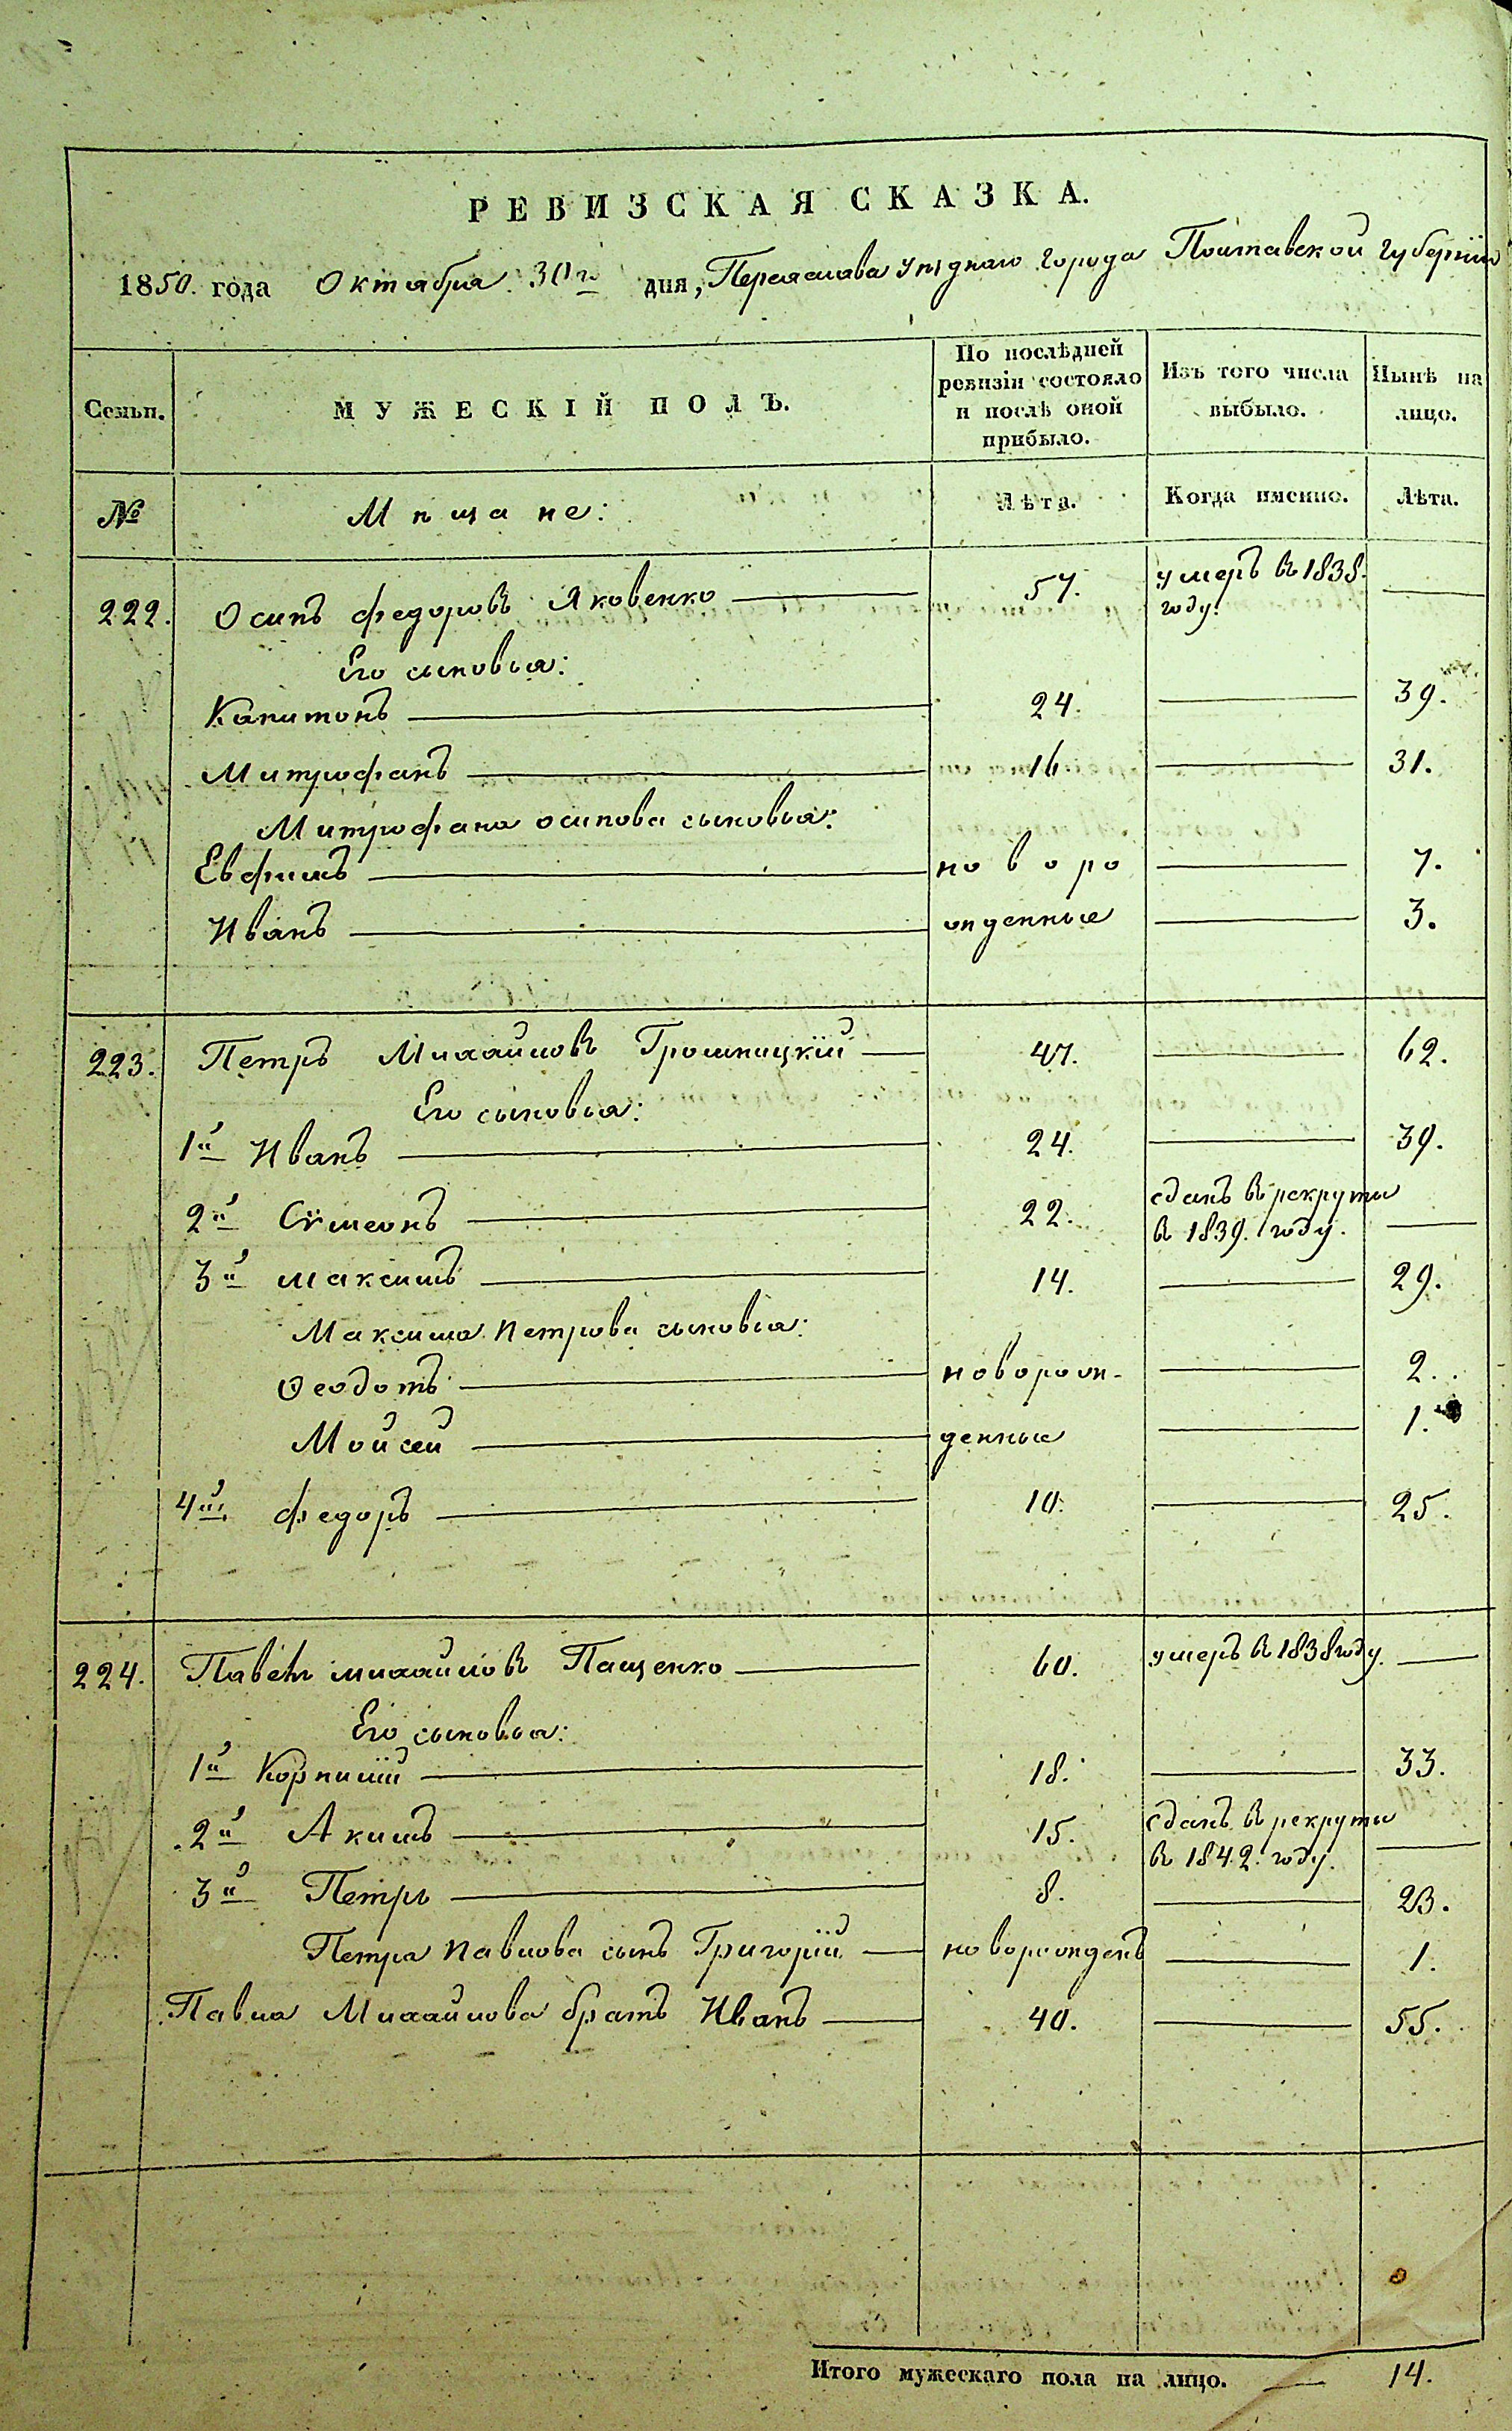 РЕВИЗСКАЯ СКАЗКА.
1850. года Октября 30го дня, Переяслава уѣзднаго города Полтавской губерніи
Семьи.
МУЖЕСКІЙ ПОЛЪ.
По послѣдней ревизіи состояло и послѣ оной прибыло.
Изъ того числа выбыло.
Нынѣ на лицо.
№ Мѣщане: Лѣта. Когда именно. Лѣта.
222. Осипъ Федоровъ Яковенко 57. умеръ въ 1838. году.
Его сыновья:
Капитонъ 24. 39.
Митрофанъ 16 31.
Митрофана Осипова сыновья:
Евфимъ новоро 7.
Иванъ жденные 3.
223. Петръ Михайловъ 47. 62.
Его сыновья:
1й Иванъ 24. 39.
2й Сѵмеонъ 22. сданъ въ рекруты въ 1839. году.
3й Максимъ 14. 29.
Максима Петрова сыновья:
Ѳеодотъ новорож- 2.
Мойсей денные 1.
4й. Федоръ 10. 25.
224. Павелъ Михайловъ Пащенко 60. умеръ въ 1838 году.
Его сыновья:
1й Корнилій 18. 33.
2й Акимъ 15. сданъ въ рекруты въ 1842. году.
3й Петръ 8. 23.
Петра Павлова сынъ Григорій новорожденъ 1.
Павла Михайлова братъ Иванъ 40. 55.
Итого мужескаго пола на лицо. 14.